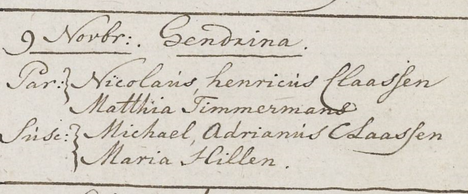 9 Novbr: Hendrina.
Par: Nicolaús henricús Claassen
Matthia Timmermans
Súsc: Michael, Adrianús Claassen
Maria Hillen.